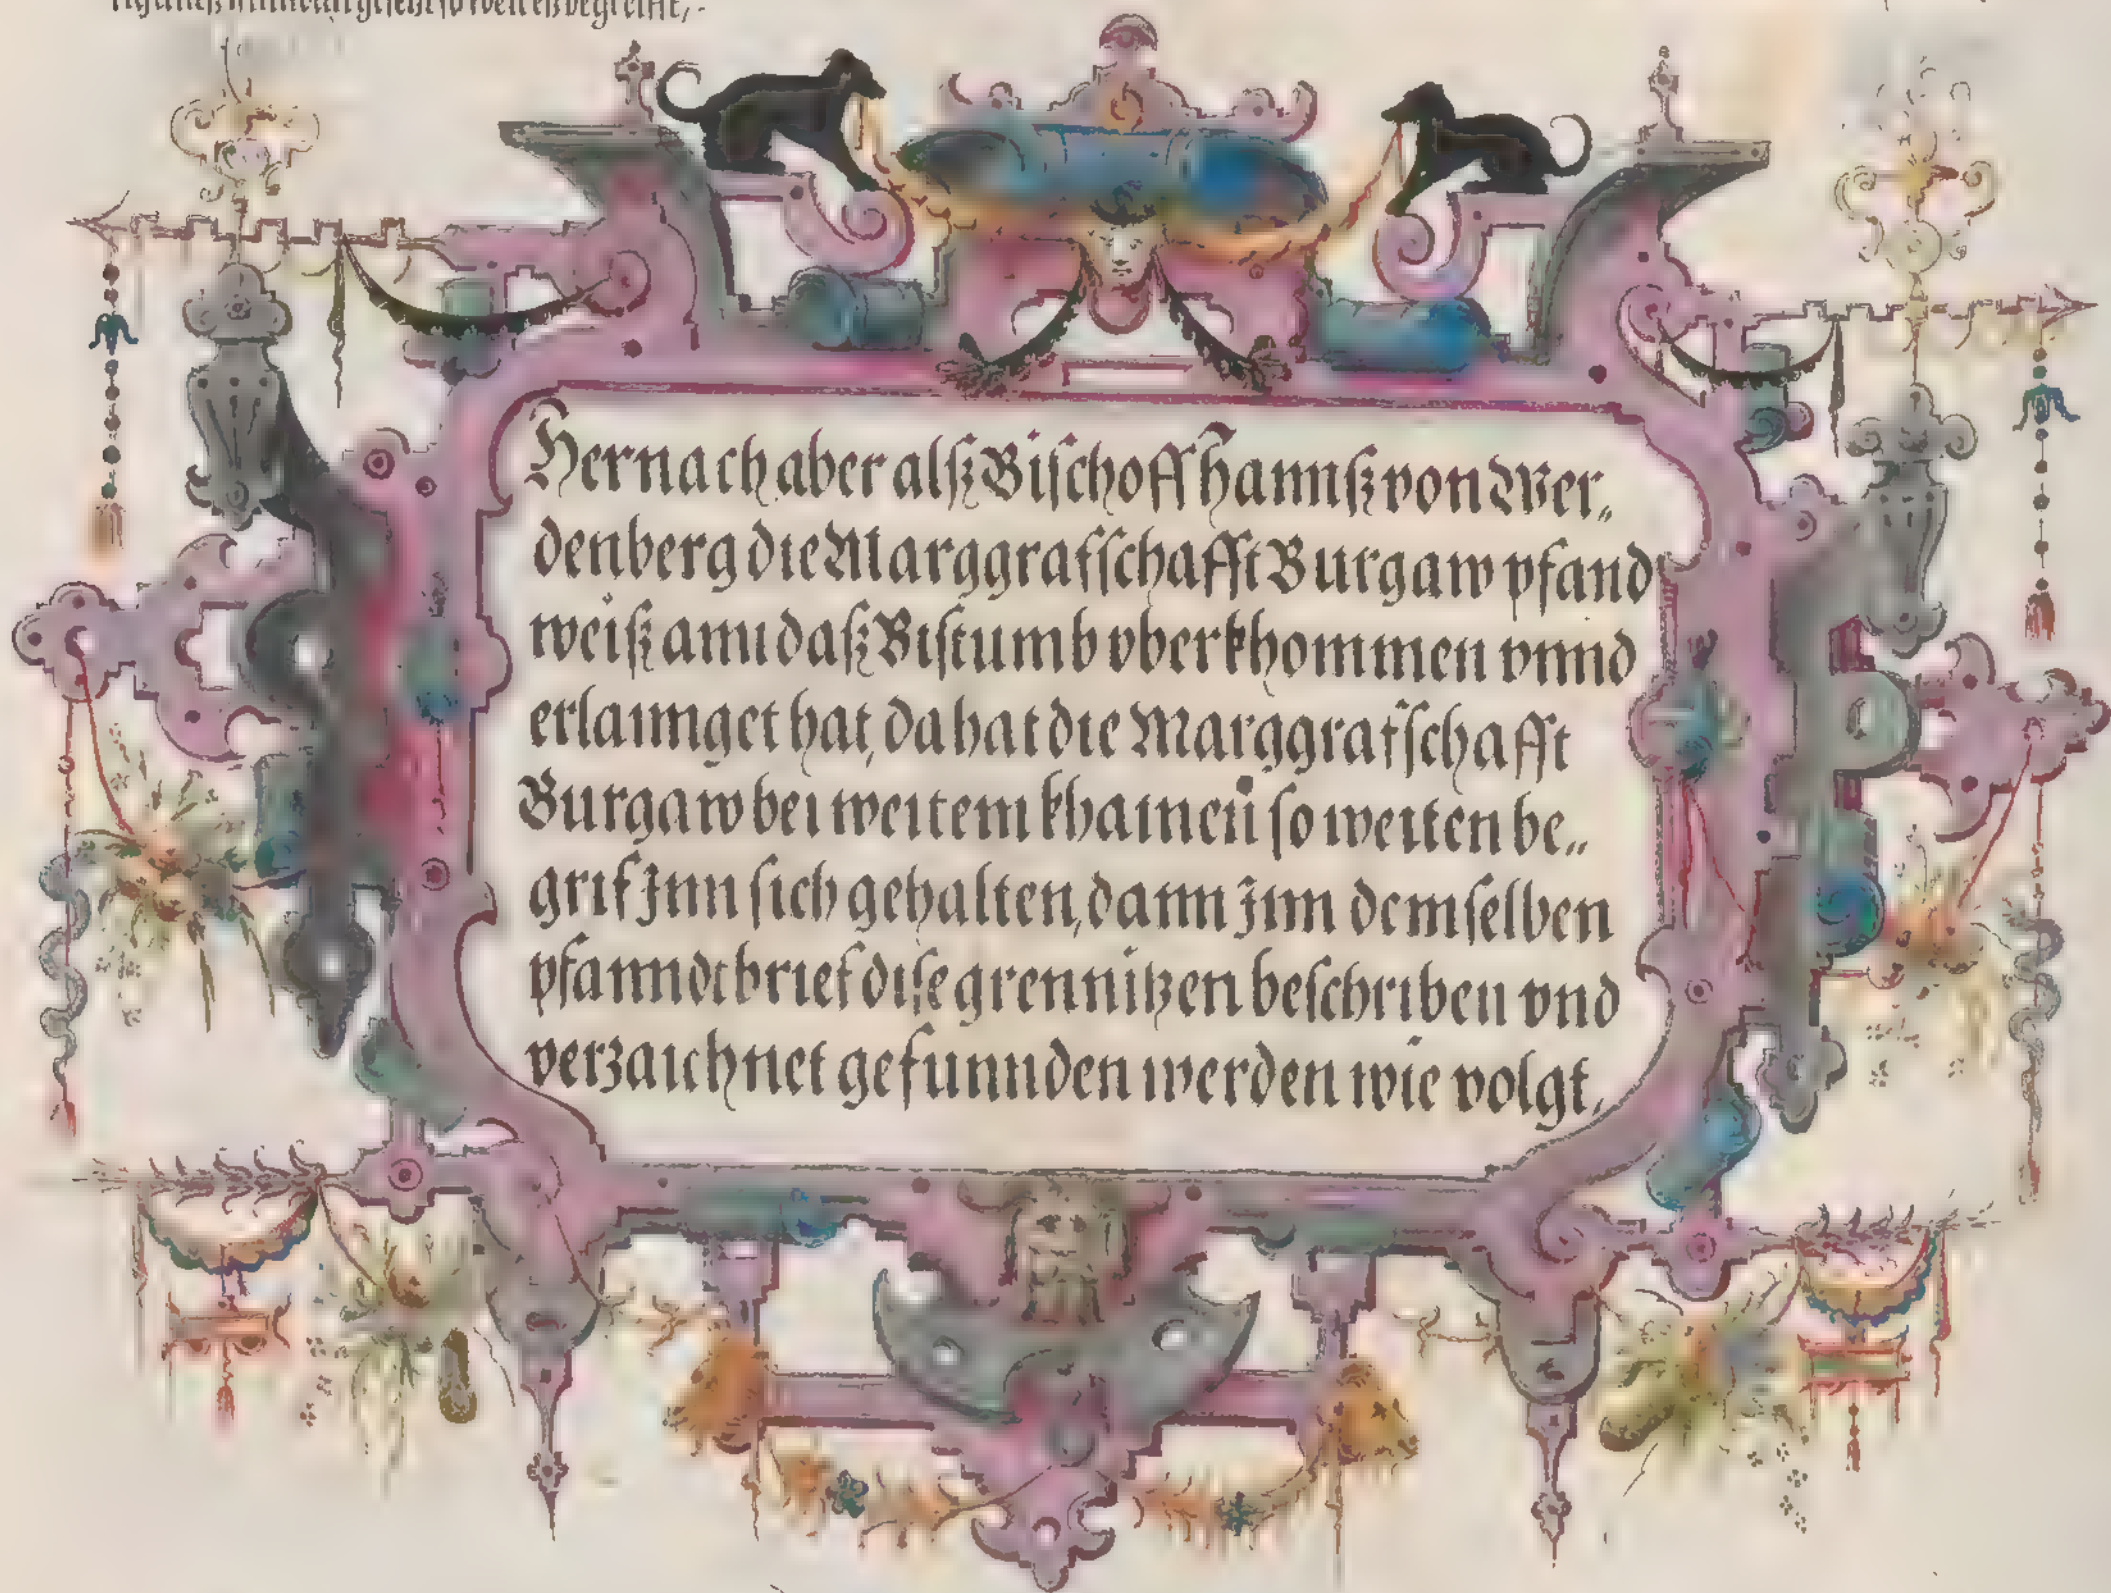 so weit es begreifft,
Hernach aber alsz Bischoff Hannsz von Wer„
denberg die Marggrafschafft Burgaw pfand
weisz ann dasz Bistumb vberkhommen vnnd
erlannget hat, da hat die Marggrafschafft
Burgaw bei weitem khainen so weiten be„
grif Jnn sich gehalten, dann Jnn demselben
pfanndtbrief dise grennitzen beschriben vnd
verzaichnet gefunnden werden wie volgt,